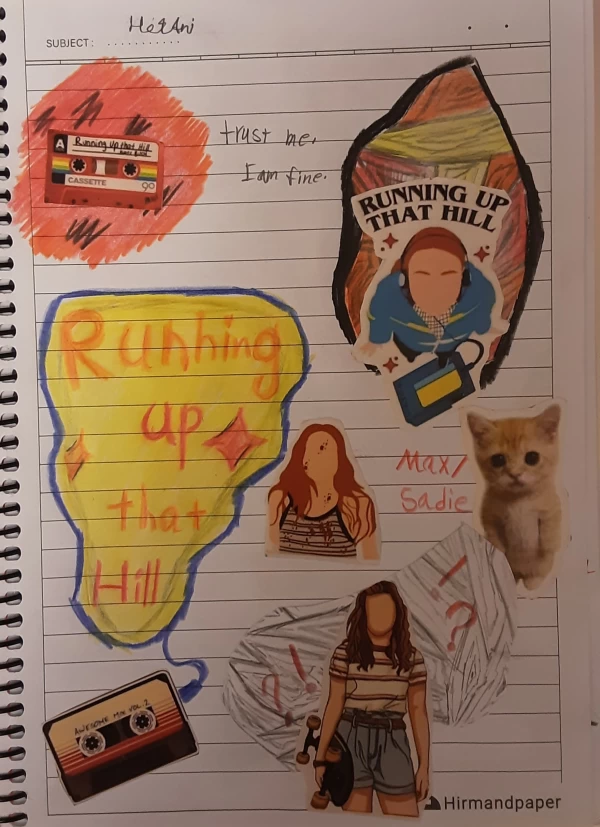 SUBJECT:
trust me,
I am fine.
A Running up that Hill
CASSETTE 90
RUNNING UP
THAT HILL
Running
up
that
Hill
Max/
Sadie
!?
?!
AWESOME MIX VOL. 2
Hirmandpaper